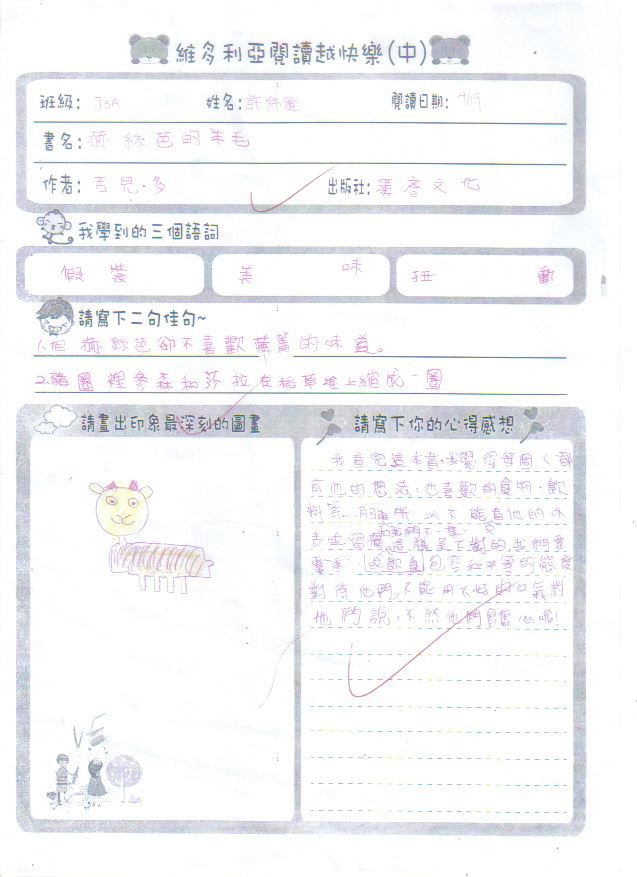 維多利亞閱讀越快樂(中)
班級: J3A 姓名: 許 閱讀日期: 9/19
書名: 赫絲芭的羊毛
作者: 吉兒.多 出版社: 漢彥文化
我學到的三個語詞
假裝 美味 扭動
請寫下二句佳句~
1.但赫絲芭卻不喜歡蕪菁的味道。
2.豬圈裡麥森和莎拉在稻草堆上縮成一團
請畫出印象最深刻的圖畫 請寫下你的心得感想
我看完這本書,我覺得每個人都
有他的想法,也喜歡的食物、飲
料等 所以不能看他的
和我們不一樣
去或習慣 這樣是不對的,我們要
飲食 包容和平等的態度
對待他們,不能用不好的口氣對
他們說,不然他們會傷心哦!